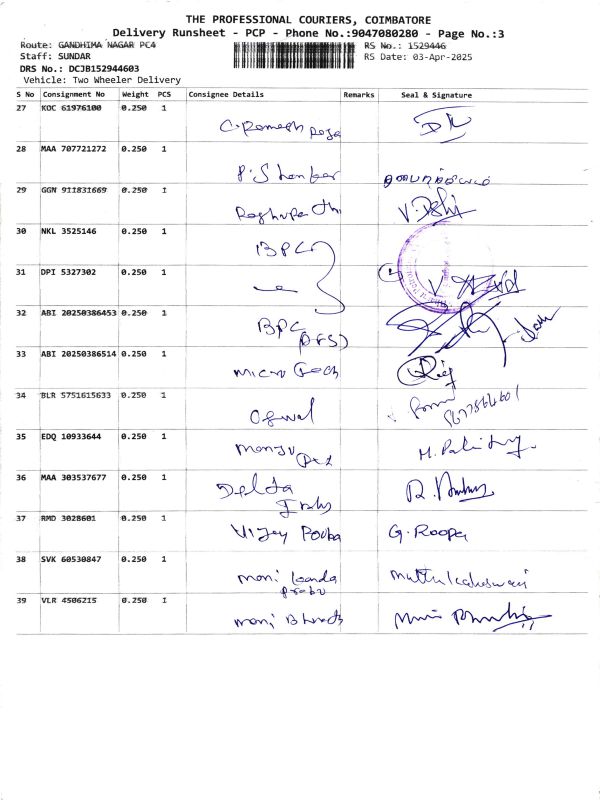 THE PROFESSIONAL COURIERS, COIMBATORE
Delivery Runsheet - PCP - Phone No.:9047080280 - Page No.:3
Route: GANDHIMA NAGAR PC4
RS No.: 1529446
Staff: SUNDAR
RS Date: 03-Apr-2025
DRS No.: DCJB152944603
Vehicle: Two Wheeler Delivery
S No Consignment No Weight PCS Consignee Details Remarks Seal & Signature
27 KOC 61976100 0.250 1
C. Ramesh Raja
28 MAA 707721272 0.250 1
P. Shankar
29 GGN 911831669 0.250 1
Raghupathi
30 NKL 3525146 0.250 1
BPC
31 DPI 5327302 0.250 1
32 ABI 20250386453 0.250 1
BPC
33 ABI 20250386514 0.250 1
Micro Tech
34 BLR 5751615633 0.250 1
35 EDQ 10933644 0.250 1
Manju
36 MAA 303537677 0.250 1
Delta
37 RMD 3028601 0.250 1
Vijay G. Roopa
38 SVK 60530847 0.250 1
Mani kanda
prabu
39 VLR 4506215 0.250 1
Mani Bharath